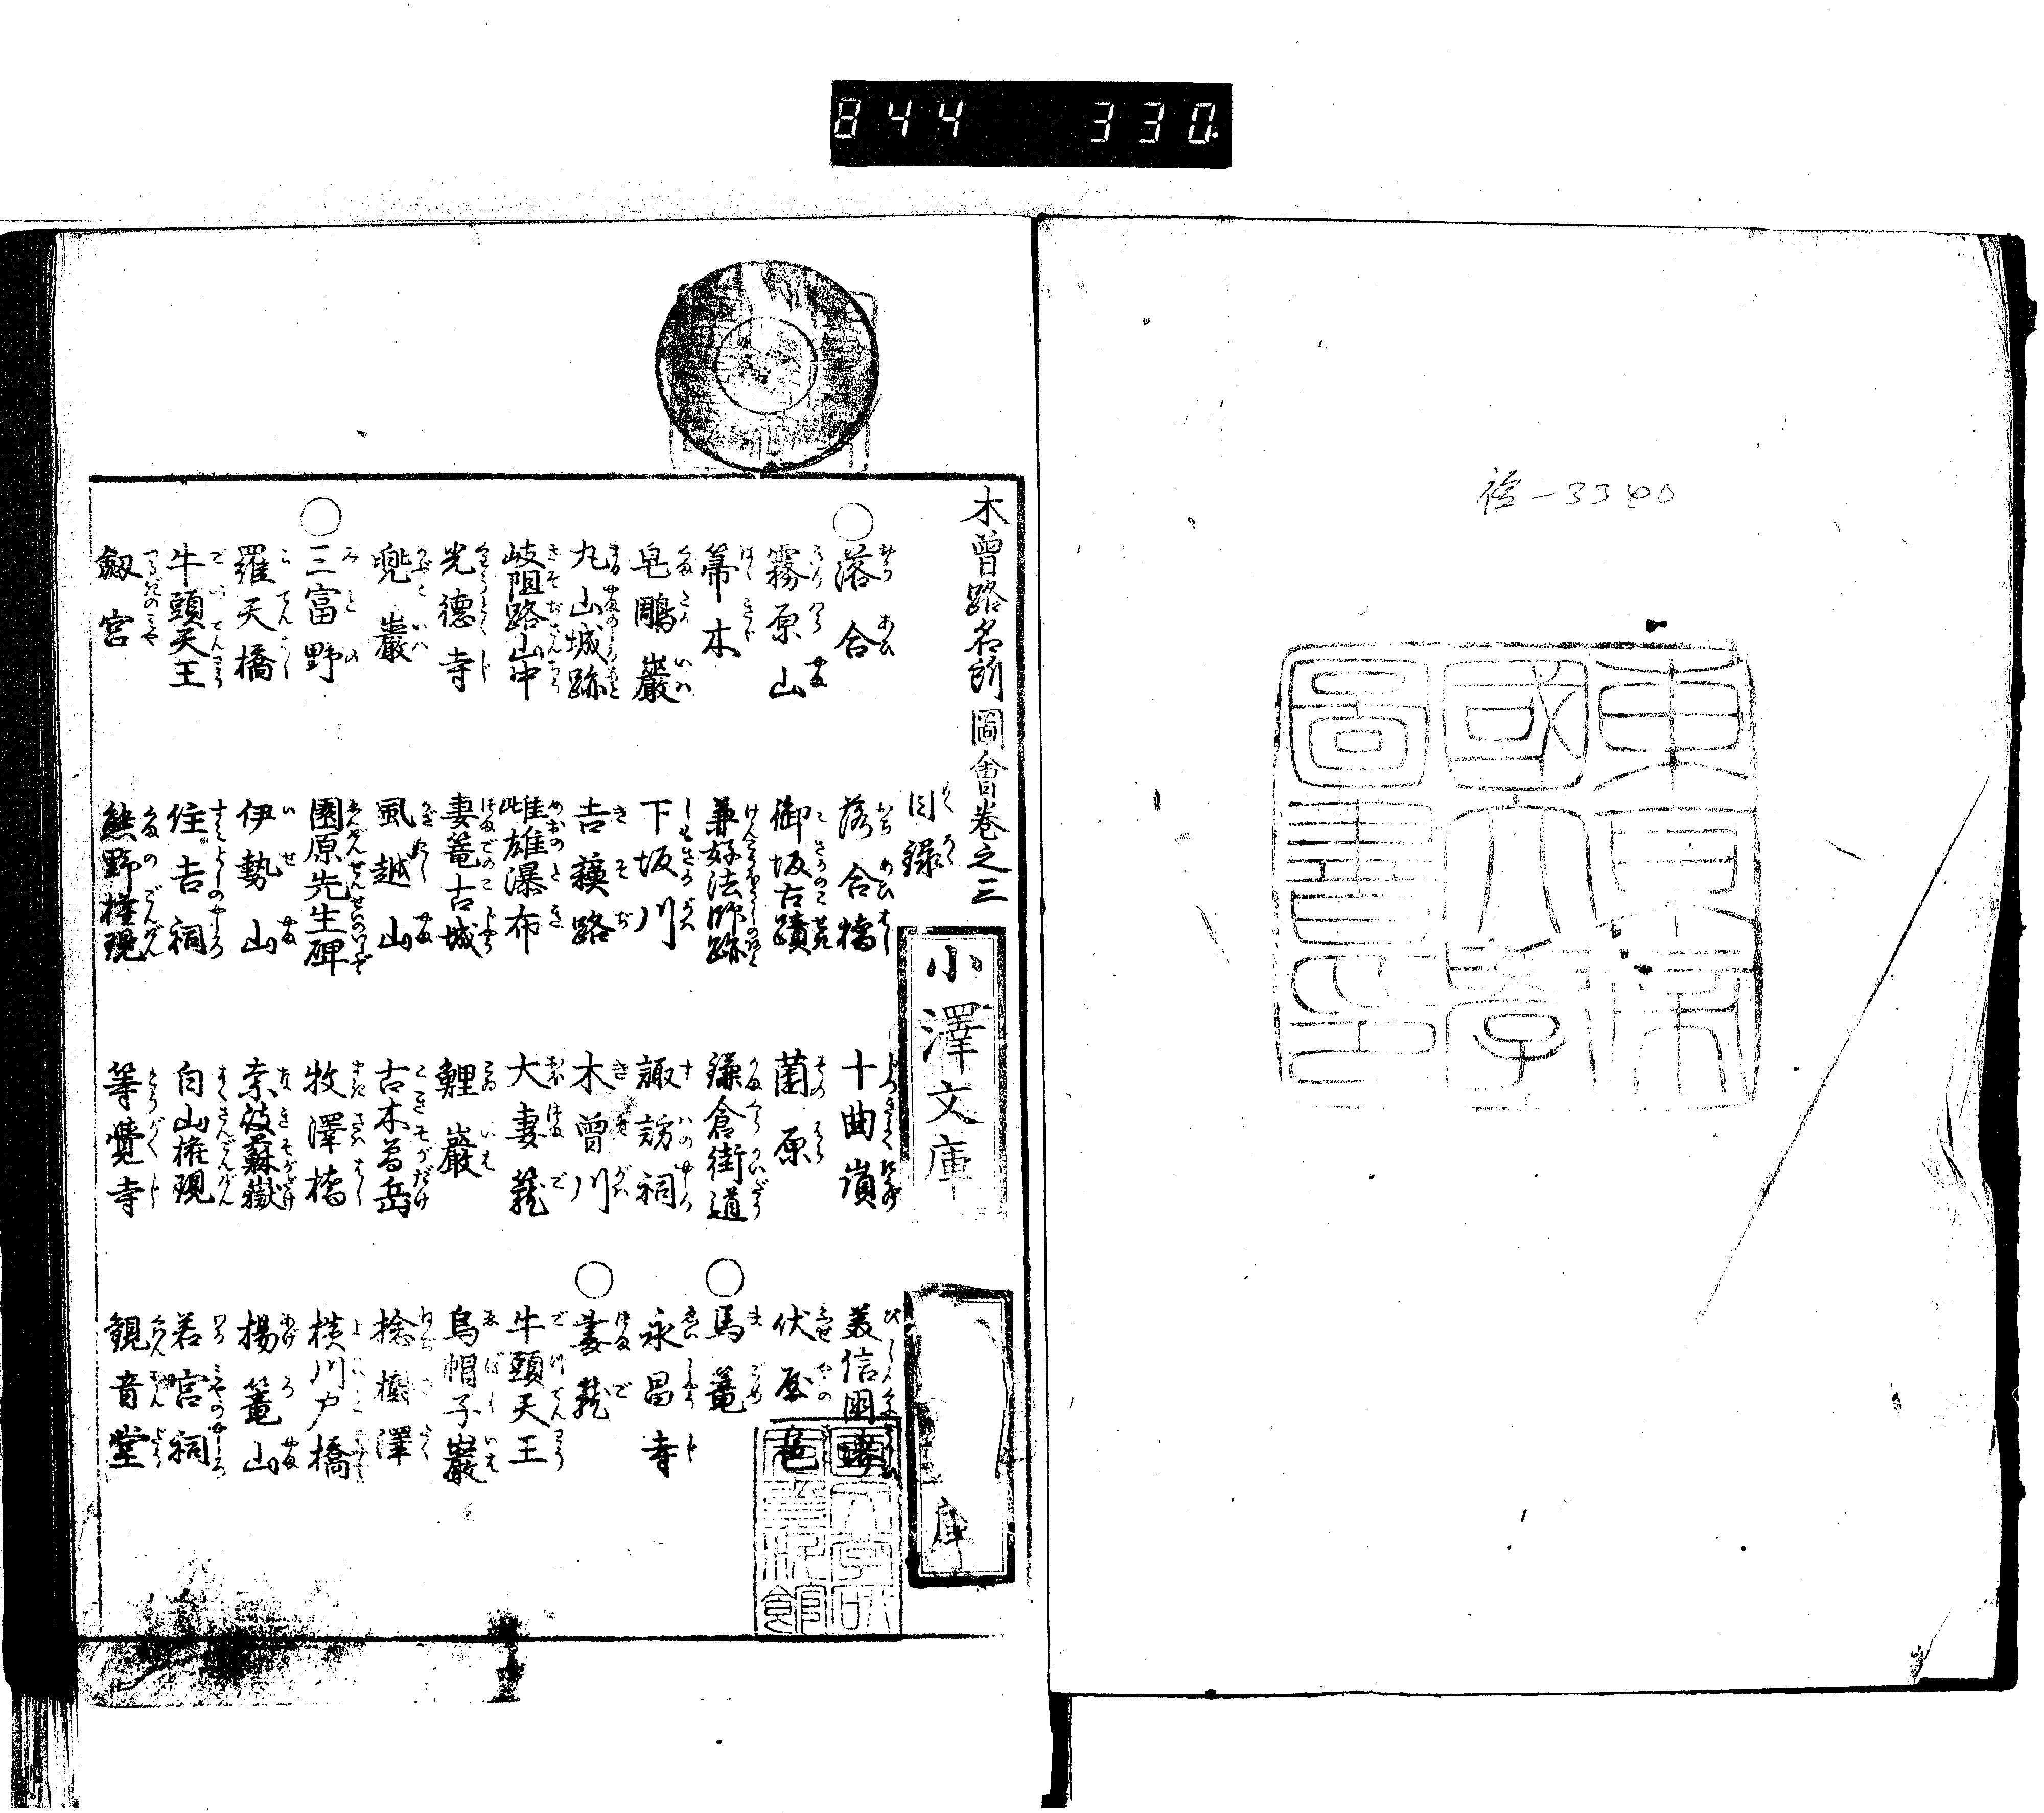 844 330
袷-3340
東京帝
國大學
圖書印
木曾路名所圖會卷之三
目録
小澤文庫
庫
○落合 落合橋 十曲嶺 美信國堺
霧原山 御坂古蹟 薗原 伏屋
箒木 兼好法師跡 鎌倉街道 ○馬篭
皂鵰巖 下坂川 諏訪祠 永昌寺
丸山城跡 吉蘓路 木曽川 ○妻籠
岐阻路山中 雌雄瀑布 大妻籠 牛頭天王
光德寺 妻篭古城 鯉巖 烏帽子巖
兜巖 風越山 古木曽岳 捻樹澤
○三富野 園原先生碑 牧澤橋 横川戸橋
羅天橋 伊勢山 奈岐蘇嶽 楊篭山
牛頭天王 住吉祠 白山権現 若宮祠
劔宮 熊野権現 等覺寺 観音堂